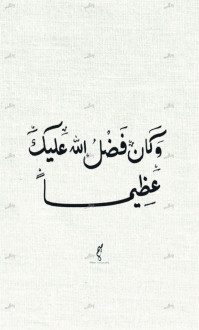 وَكَانَ فَضْلُ اللهِ عَلَيْكَ
عَظِيماً